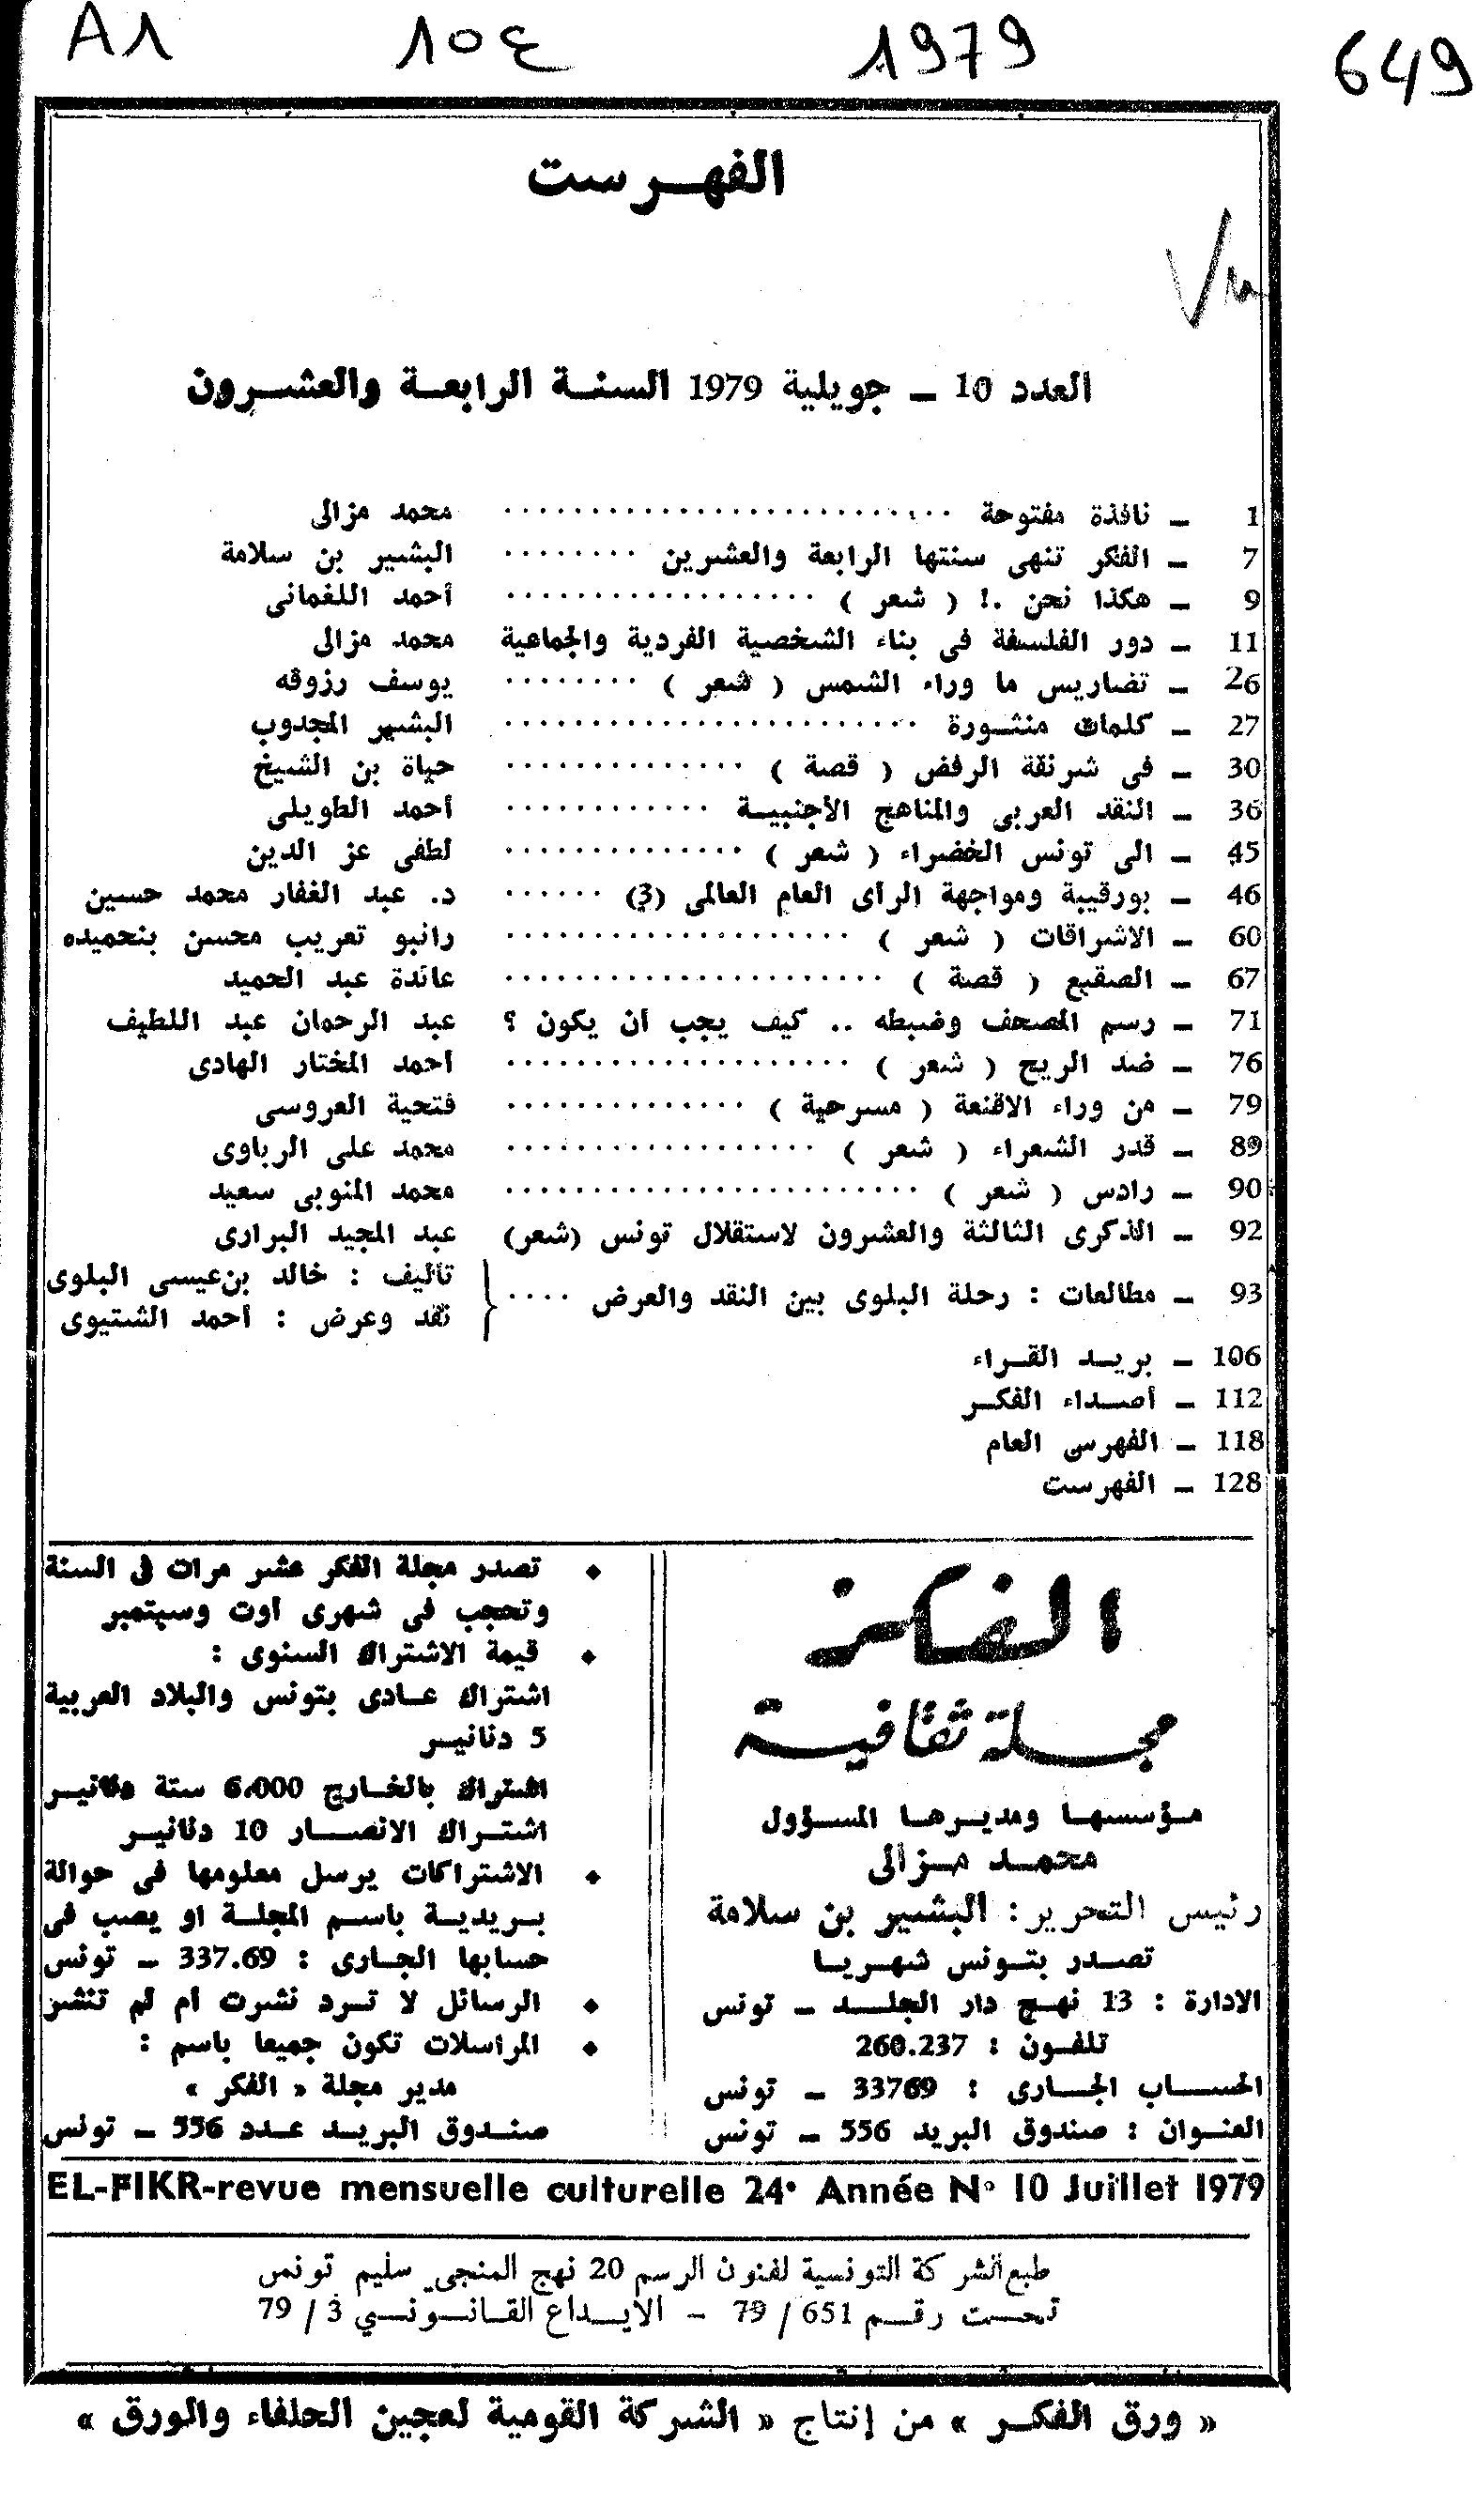 A1 10ع 1979 649
الفهرست
العدد 10 ـ جويلية 1979 السنة الرابعة والعشرون
1 ـ نافذة مفتوحة .......................... محمد مزالى
7 ـ الفكر تنهى سنتها الرابعة والعشرين ........ البشير بن سلامة
9 ـ هكذا نحن .! ( شعر ) .................. أحمد اللغمانى
11 ـ دور الفلسفة فى بناء الشخصية الفردية والجماعية محمد مزالى
26 ـ تضاريس ما وراء الشمس ( شعر ) ........ يوسف رزوقه
27 ـ كلمات منثورة ........................ البشير المجدوب
30 ـ فى شرنقة الرفض ( قصة ) .............. حياة بن الشيخ
36 ـ النقد العربى والمناهج الأجنبية ............ أحمد الطويلى
45 ـ الى تونس الخضراء ( شعر ) .............. لطفى عز الدين
46 ـ بورقيبة ومواجهة الرأى العام العالمى (3) ...... د. عبد الغفار محمد حسين
60 ـ الاشراقات ( شعر ) .................... رانبو تعريب محسن بنحميده
67 ـ الصقيع ( قصة ) ...................... عائدة عبد الحميد
71 ـ رسم المصحف وضبطه .. كيف يجب أن يكون ؟ عبد الرحمان عبد اللطيف
76 ـ ضد الريح ( شعر ) .................... أحمد المختار الهادى
79 ـ من وراء الاقنعة ( مسرحية ) .............. فتحية العروسى
89 ـ قدر الشعراء ( شعر ) .................. محمد على الرباوى
90 ـ رادس ( شعر ) ........................ محمد المنوبى سعيد
92 ـ الذكرى الثالثة والعشرون لاستقلال تونس (شعر) عبد المجيد البرارى
93 ـ مطالعات : رحلة البلوى بين النقد والعرض .... { تأليف : خالد بن عيسى البلوى
نقد وعرض : أحمد الشتيوى
106 ـ بريد القراء
112 ـ أصداء الفكر
118 ـ الفهرس العام
128 ـ الفهرست
الفكر
مجلة ثقافية
مؤسسها ومديرها المسؤول
محمد مزالى
رئيس التحرير : البشير بن سلامة
تصدر بتونس شهريا
الادارة : 13 نهج دار الجلد ـ تونس
تلفون : 260.237
الحساب الجارى : 33769 ـ تونس
العنوان : صندوق البريد 556 ـ تونس
♦ تصدر مجلة الفكر عشر مرات فى السنة
وتحجب فى شهرى أوت وسبتمبر
♦ قيمة الاشتراك السنوى :
اشتراك عادى بتونس والبلاد العربية
5 دنانير
اشتراك بالخارج 6.000 ستة دنانير
اشتراك الانصار 10 دنانير
♦ الاشتراكات يرسل معلومها فى حوالة
بريدية باسم المجلة او يصب فى
حسابها الجارى : 337.69 ـ تونس
♦ الرسائل لا ترد نشرت أم لم تنشر
♦ المراسلات تكون جميعا باسم :
مدير مجلة « الفكر »
صندوق البريد عدد 556 ـ تونس
EL-FIKR-revue mensuelle culturelle 24e Année No 10 Juillet 1979
طبع الشركة التونسية لفنون الرسم 20 نهج المنجى سليم تونس
تحت رقم 651 / 79 ـ الايداع القانوني 3 / 79
« ورق الفكر » من إنتاج « الشركة القومية لعجين الحلفاء والورق »